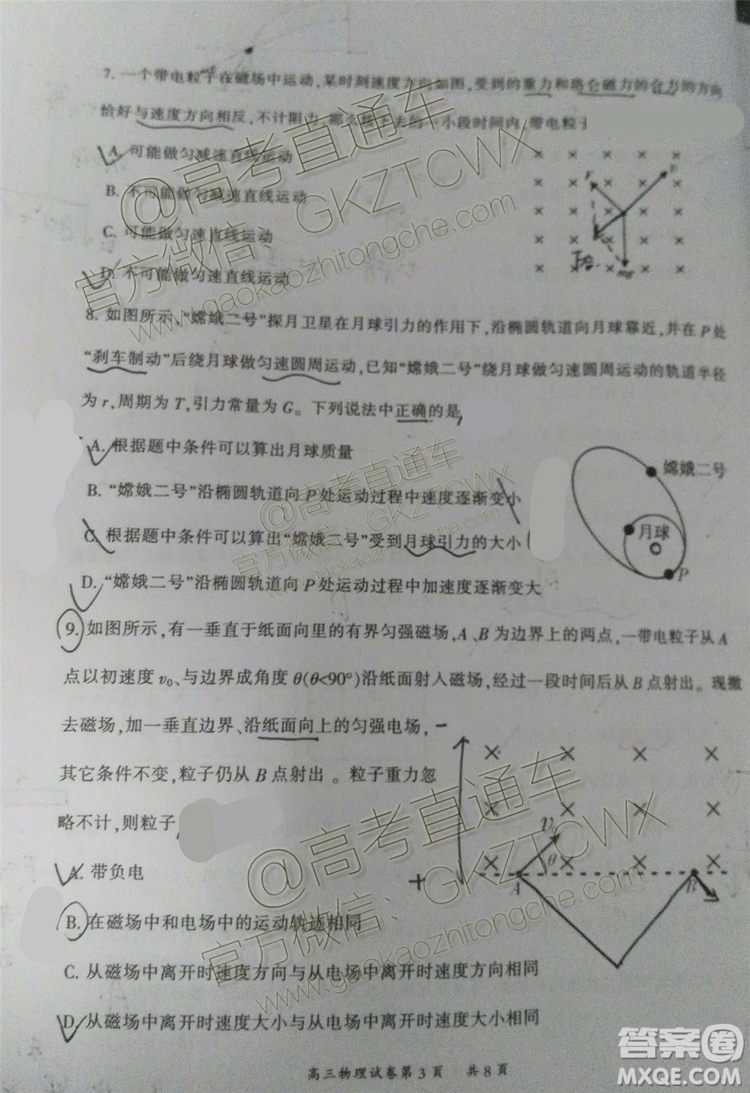 7. 一个带电粒子在磁场中运动,某时刻速度方向如图,受到的重力和洛仑磁力的合力的方向
恰好与速度方向相反,不计阻力,那么接下去的一小段时间内,带电粒子
A. 可能做匀减速直线运动
B. 不可能做匀减速直线运动
C. 可能做匀速直线运动
D. 不可能做匀速直线运动
F
v
mg
8. 如图所示,“嫦娥二号”探月卫星在月球引力的作用下,沿椭圆轨道向月球靠近,并在 P 处
“刹车制动”后绕月球做匀速圆周运动,已知“嫦娥二号”绕月球做匀速圆周运动的轨道半径
为 r,周期为 T,引力常量为 G。下列说法中正确的是
A. 根据题中条件可以算出月球质量
B. “嫦娥二号”沿椭圆轨道向 P 处运动过程中速度逐渐变小
C. 根据题中条件可以算出“嫦娥二号”受到月球引力的大小
D. “嫦娥二号”沿椭圆轨道向 P 处运动过程中加速度逐渐变大
嫦娥二号
月球
P
9. 如图所示,有一垂直于纸面向里的有界匀强磁场,A、B 为边界上的两点,一带电粒子从 A
点以初速度 v₀、与边界成角度 θ(θ<90°)沿纸面射入磁场,经过一段时间后从 B 点射出。现撤
去磁场,加一垂直边界、沿纸面向上的匀强电场,
其它条件不变,粒子仍从 B 点射出 。粒子重力忽
略不计,则粒子
A. 带负电
B. 在磁场中和电场中的运动轨迹相同
C. 从磁场中离开时速度方向与从电场中离开时速度方向相同
D. 从磁场中离开时速度大小与从电场中离开时速度大小相同
v₀
θ
A
B
高三物理试卷第 3 页 共 8 页
@高考直通车
官方微信: GKZTCWX
www.gaokaozhitongche.com
@高考直通车
官方微信: GKZTCWX
www.gaokaozhitongche.com
@高考直通车
官方微信: GKZTCWX
www.gaokaozhitongche.com
答案圈
MXQE.COM